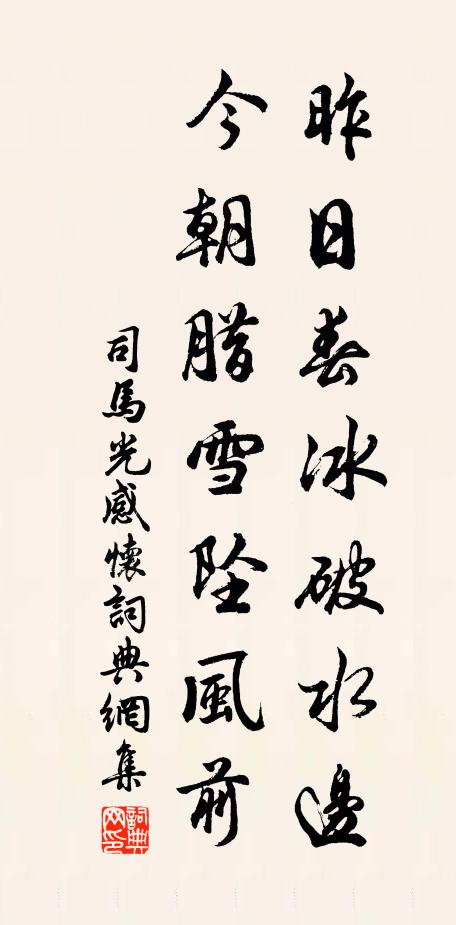 昨日春冰破水邊
今朝腊雪坠風前
司馬光感懷詞典網集
詞典网印